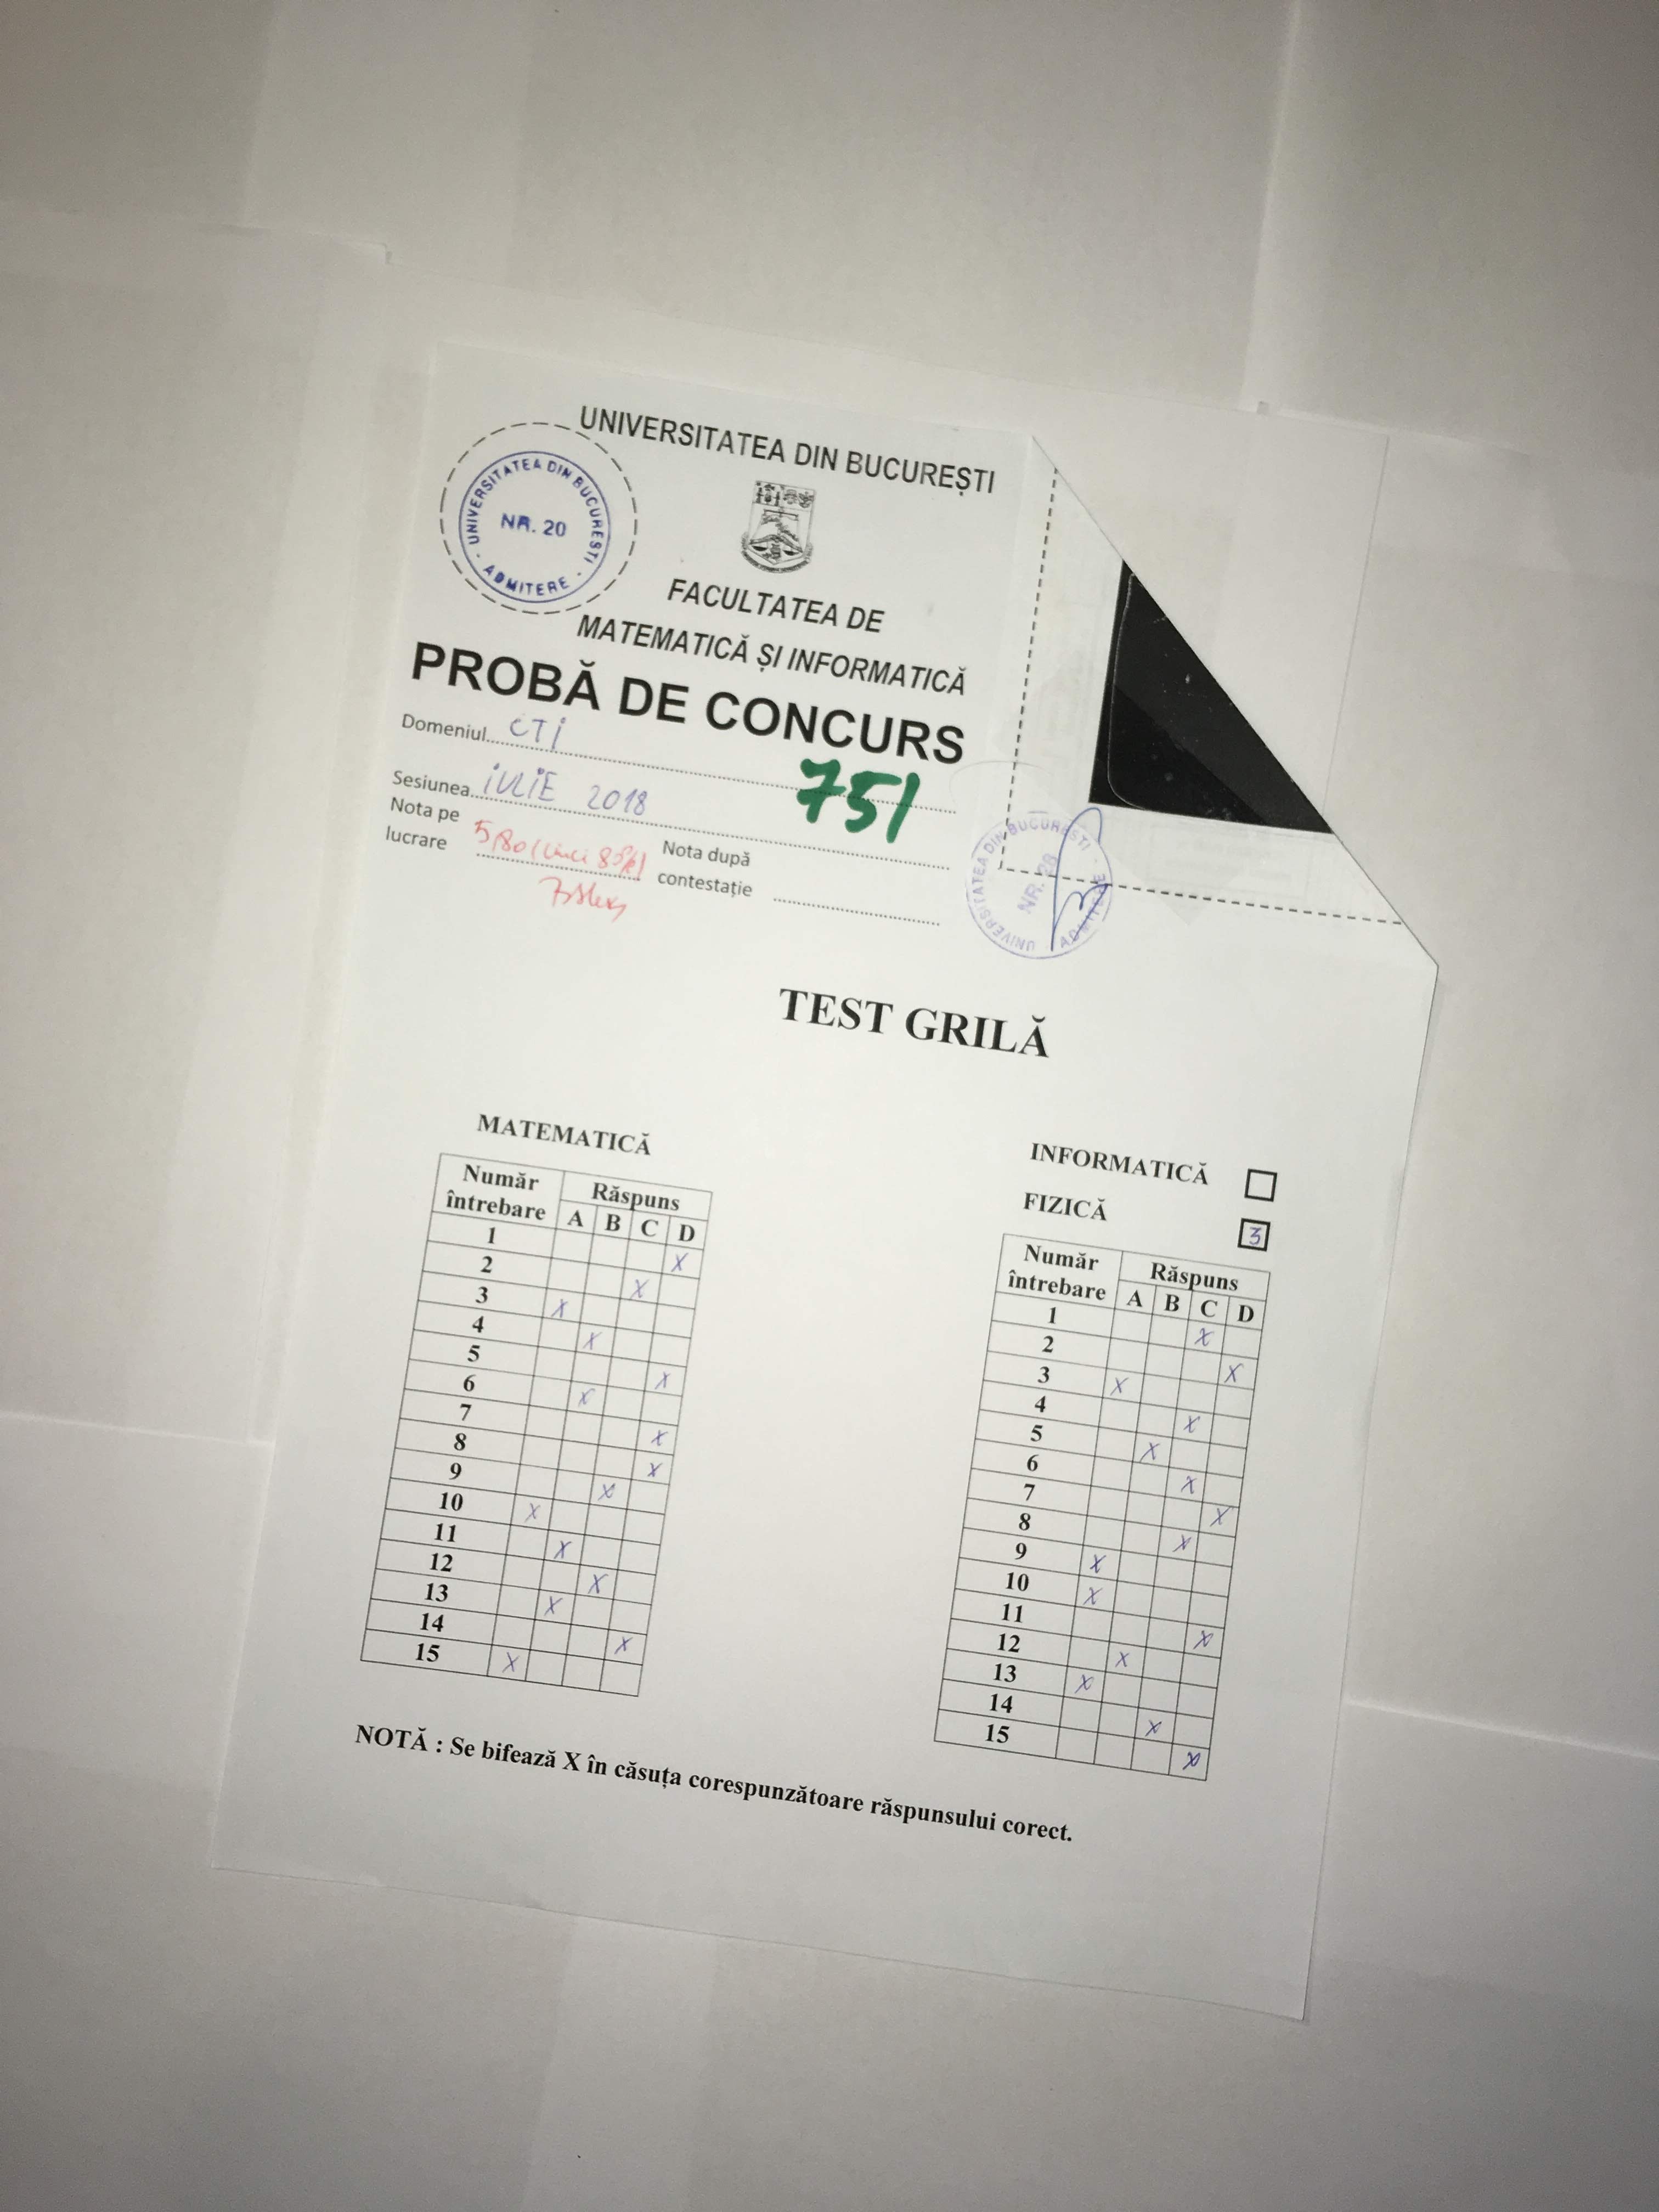 UNIVERSITATEA DIN BUCUREȘTI
UNIVERSITATEA DIN BUCUREȘTI
NR. 20
ADMITERE
FACULTATEA DE
MATEMATICĂ ȘI INFORMATICĂ
PROBĂ DE CONCURS
Domeniul CTI
Sesiunea IULIE 2018
751
Nota pe
lucrare
Nota după
contestație
UNIVERSITATEA DIN BUCUREȘTI
NR. 28
ADMITERE
TEST GRILĂ
MATEMATICĂ
Număr Răspuns
întrebare A B C D
1 X
2 X
3 X
4 X
5 X
6 X
7 X
8 X
9 X
10 X
11 X
12 X
13 X
14 X
15 X
INFORMATICĂ
FIZICĂ 3
Număr Răspuns
întrebare A B C D
1 X
2 X
3 X
4 X
5 X
6 X
7 X
8 X
9 X
10 X
11 X
12 X
13 X
14 X
15 X
NOTĂ : Se bifează X în căsuța corespunzătoare răspunsului corect.